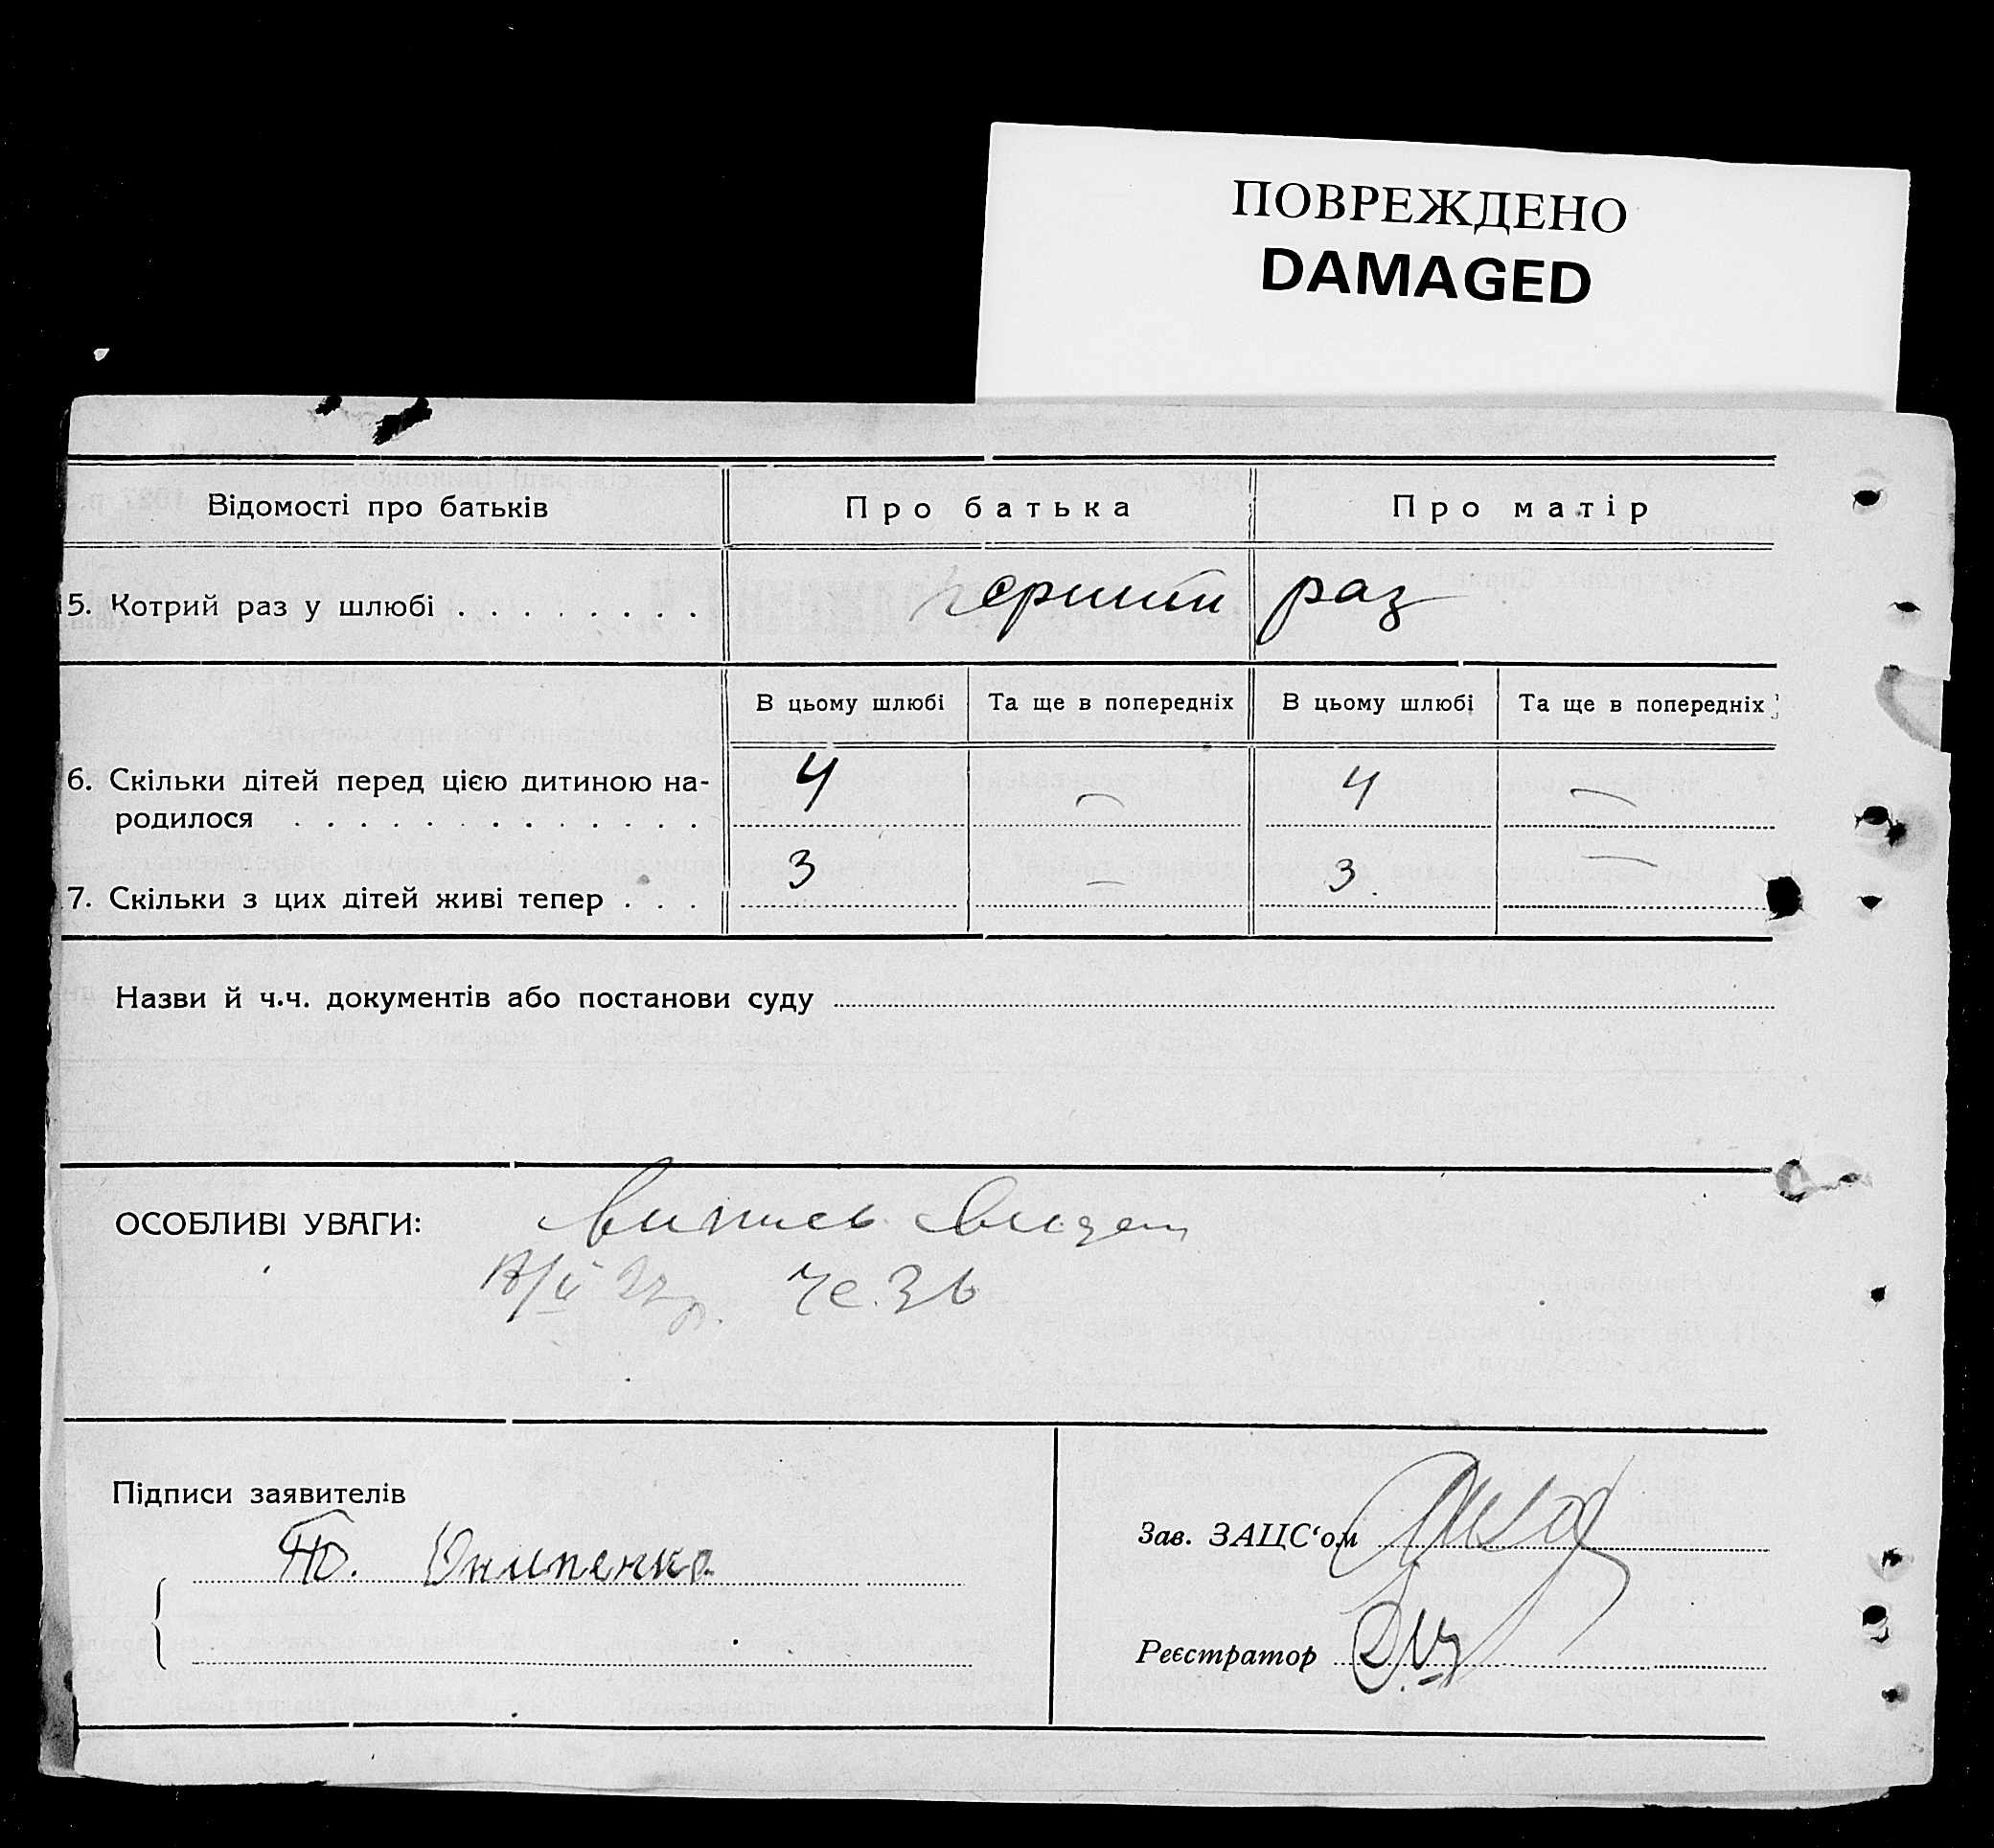 ПОВРЕЖДЕНО
DAMAGED
Відомості про батьків
Про батька
Про матір
15. Котрий раз у шлюбі . . . . . . . .
перший раз
В цьому шлюбі
Та ще в попередніх
В цьому шлюбі
Та ще в попередніх
16. Скільки дітей перед цією дитиною на-
родилося . . . . . . . . . . . . .
4 — 4 —
17. Скільки з цих дітей живі тепер . . .
3 — 3. —
Назви й ч.ч. документів або постанови суду
ОСОБЛИВІ УВАГИ:
Випись
36
Підписи заявителів
Ю. Онипенко
Зав. ЗАЦС‘ом
Реєстратор